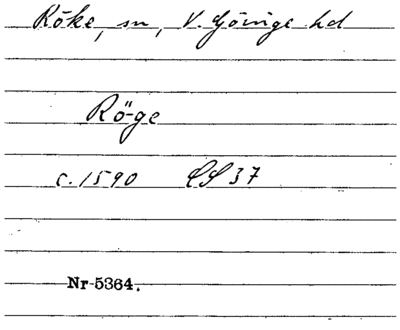 Röke, sn, V. Göinge hd
Rö-ge
c. 1590 LS 37
Nr 5364.